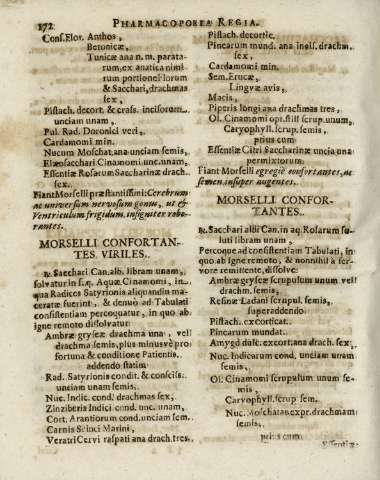 172 PHARMACOPOEA REGIA.
Cons. Flor. Anthos,
Betonicæ,
Tunicæ ana n. m. parata-
rum, ex anatica nimi-
rum portione Florum
& Sacchari, drachmas
sex,
Pistach. decort. & crass. incisorum
unciam unam,
Pul. Rad. Doronici veri,
Cardamomi min.
Nucum Moschat. ana unciam semis,
Elæosacchari Cinamomi. unc. unam,
Essentiæ Rosarum Saccharinæ drach.
sex.
Fiant Morselli præstantissimi: Cerebrum
ac universum nervosum genus, ut &
Ventriculum frigidum, insigniter robo-
rantes.
MORSELLI CONFORTAN-
TES VIRILES.
℞. Sacchari Can. alb. libram unam,
solvatur in s. q. Aquæ Cinamomi, in
qua Radices Satyrionis aliquandiu ma-
ceratæ fuerint. & denuò ad Tabulati
consistentiam percoquatur, in quo ab
igne remoto dissolvatur
Ambræ gryseæ drachma una, vel
drachma semis, plus minusvè pro
fortuna & conditione Patientis.
addendo statim
Rad. Satyrionis condit. & conscils.
unciam unam semis,
Nuc. Indic. cond. drachmas sex,
Zinziberis Indici cond. unc. unam,
Cort. Arantiorum cond. unciam sem.
Carnis Scinci Marini,
Veratri Cervi raspati ana drach. tres,
Pistach. decortic.
Pinearum mund. ana incis. drachm.
sex,
Cardamomi min.
Sem. Erucæ,
Linguæ avis,
Macis,
Piperis longi ana drachmas tres,
Ol. Cinamomi opt. still scrup. unum,
Caryophyll. scrup. semis,
prius cum
Essentiæ Citri Saccharinæ uncia una
permixtorum.
Fiant Morselli egregiè confortantes, ac
semen insuper augentes.
MORSELLI CONFOR-
TANTES.
℞. Sacchari albi Can. in aq. Rosarum so-
luti libram unam,
Percoque ad consistentiam Tabulati, in
quo ab igne remoto, & nonnihil à fer-
vore remittente, dissolve
Ambræ gryseæ scrupulum unum vel
drachm. semis,
Resinæ Ladani scrupul. semis,
superaddendo
Pistach. excorticat.
Pinearum mundat.
Amygd dulc. excort. ana drach. sex,
Nuc. Indicarum cond. unciam unam
semis,
Ol. Cinamomi scrupulum unum se-
mis,
Caryophyll. scrup sem.
Nuc. Moschatar. expr. drachmam
semis,
prius cum
Essentiæ